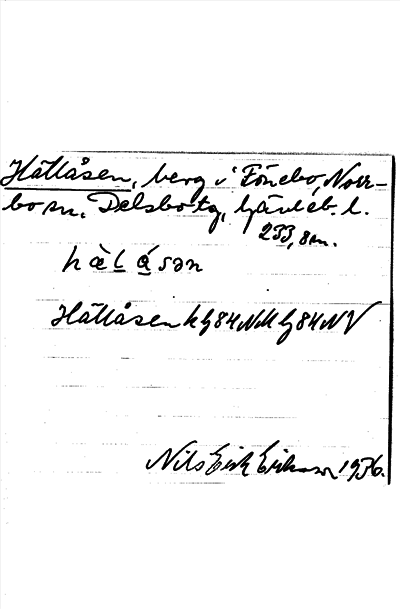 Hällåsen, berg i Fönebo, Norr-
bo sn, Delsbo tg, Gävleb. l.
233,8 m.
hàḷá̱sən
Hällåsen kg84NM lg84NV
Nils Erik Eriksson 1936.